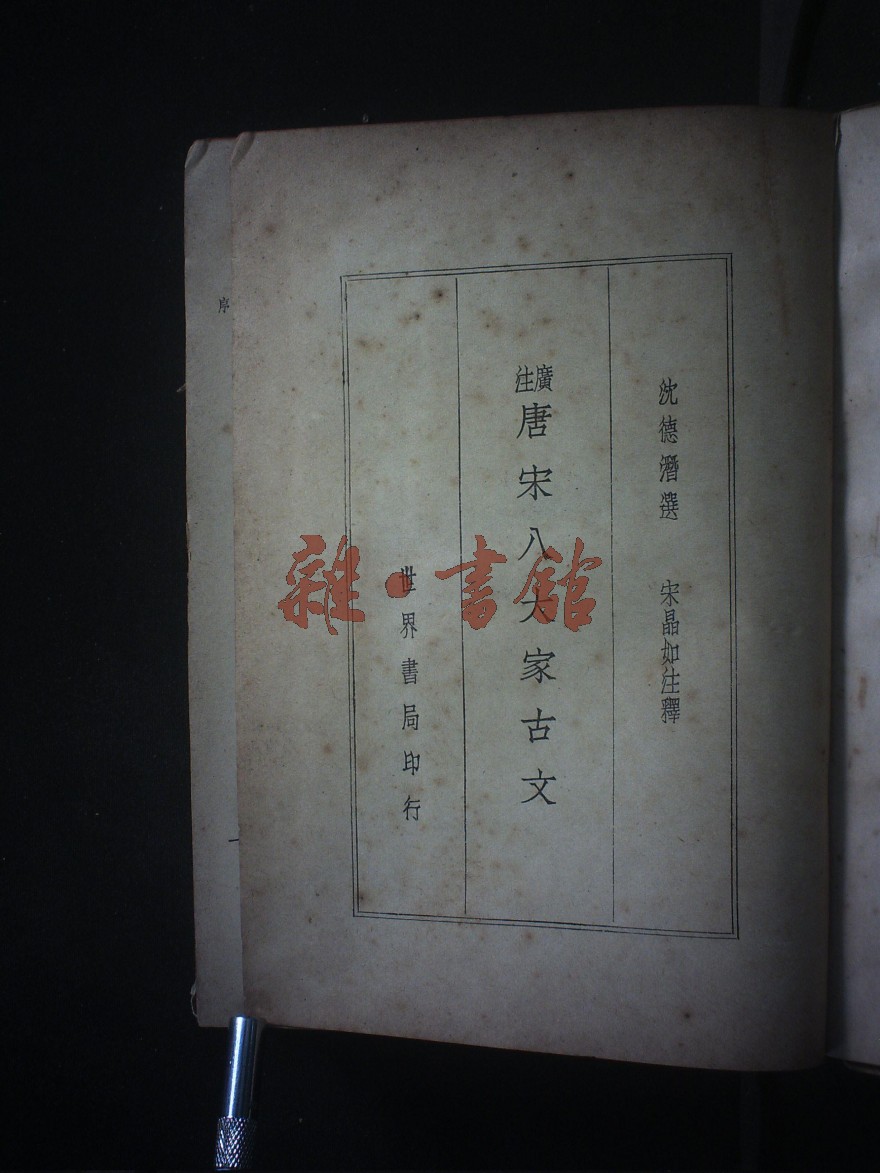 沈德潛選　宋晶如注釋
廣注
唐宋八大家古文
世界書局印行
序
一
雜·書館